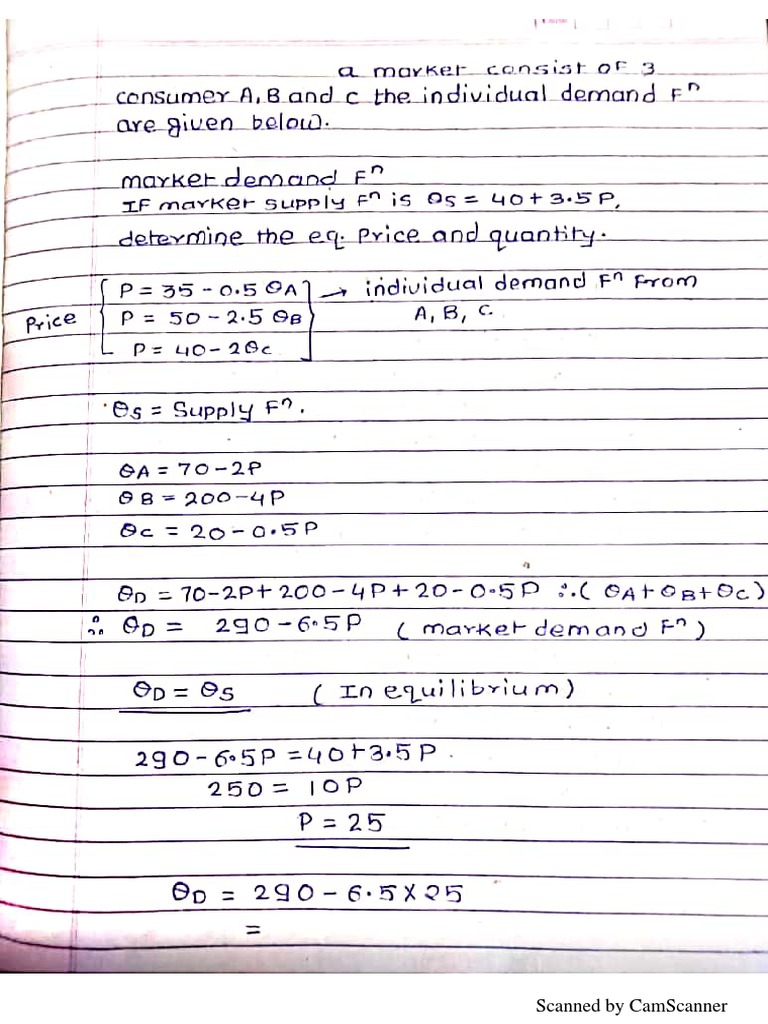 a market consist of 3
consumer A, B and C the individual demand Fⁿ
are given below.
market demand Fⁿ
IF market supply Fⁿ is Qs = 40 + 3.5P,
determine the eq. Price and quantity.
P = 35 - 0.5 QA → individual demand Fⁿ From
Price P = 50 - 2.5 QB A, B, C.
P = 40 - 2Qc
Qs = Supply Fⁿ.
QA = 70 - 2P
QB = 200 - 4P
Qc = 20 - 0.5P
QD = 70-2P + 200 - 4P + 20 - 0.5P ∴ (QA + QB + Qc)
∴ QD = 290 - 6.5P (market demand Fⁿ)
QD = Qs (In equilibrium)
290 - 6.5P = 40 + 3.5P.
250 = 10P
P = 25
QD = 290 - 6.5 X 25
=
Scanned by CamScanner